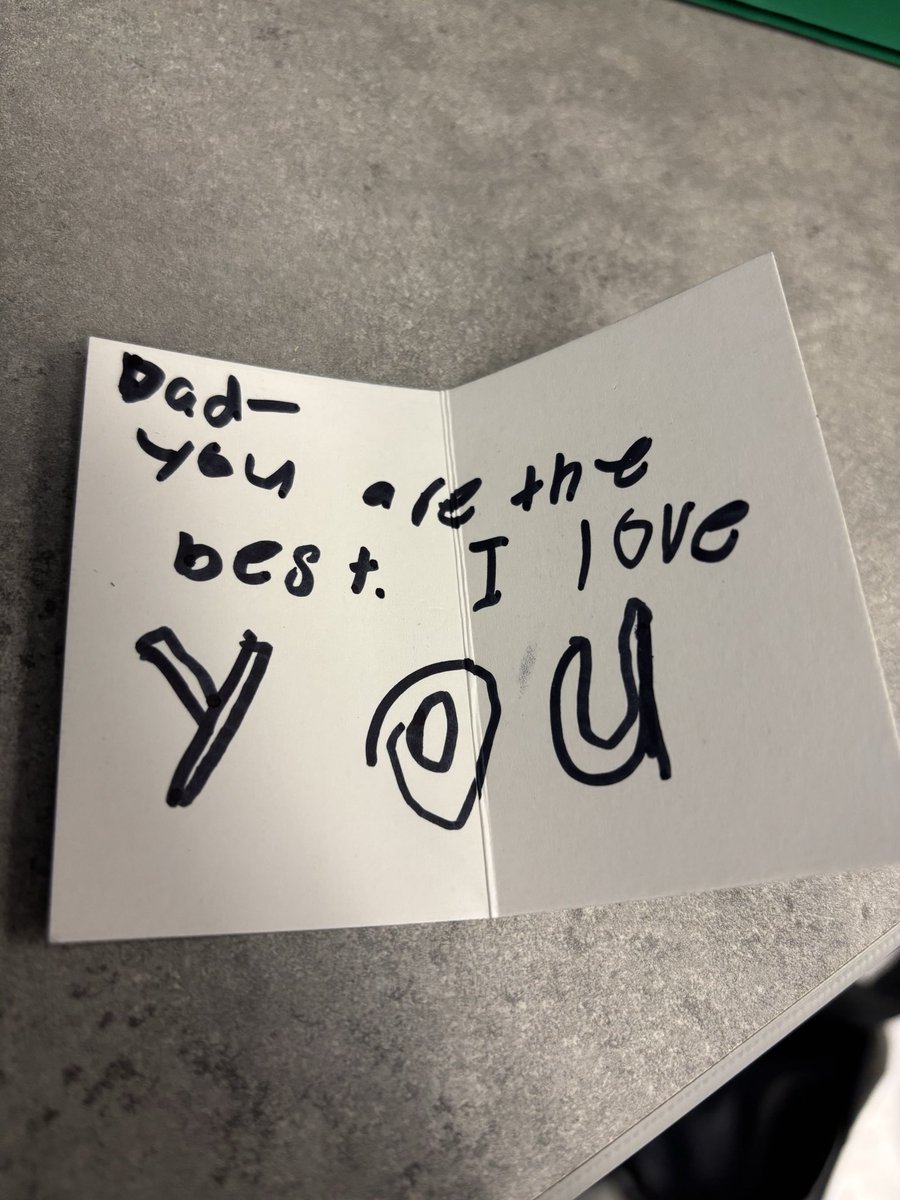 Dad—
you are the
best. I love
you